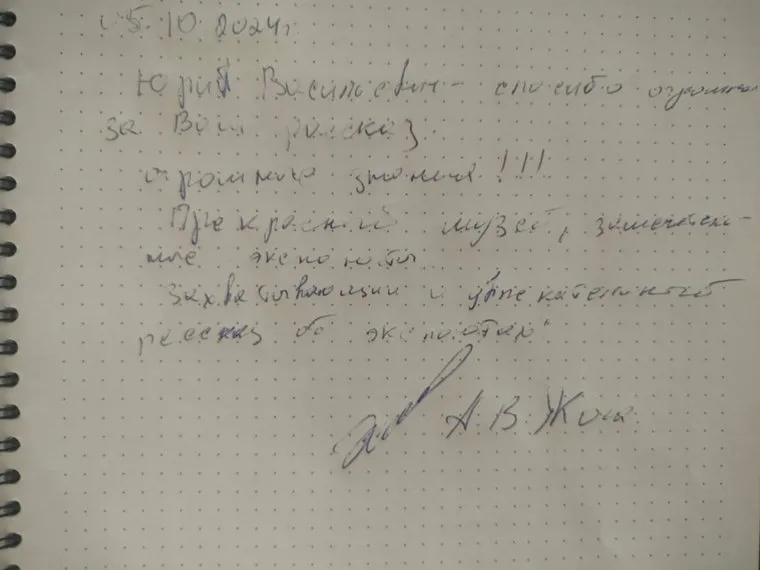 05.10.2024г.
Юрий Васильевич - спасибо огромное
за Ваш рассказ
огромные знания!!!
Прекрасный музей, замечатель-
ные экспонаты
Захватывающий и увлекательный
рассказ об экспонатах"
А.В.